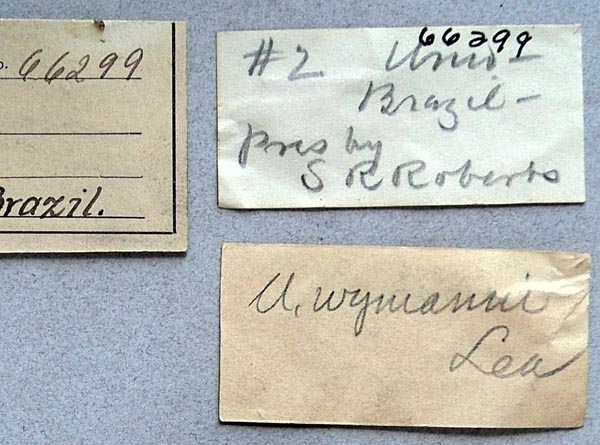 o. 66299
Brazil.
66299
#2 Unio-
Brazil-
Pres by
S R Roberts
U. wymanni
Lea